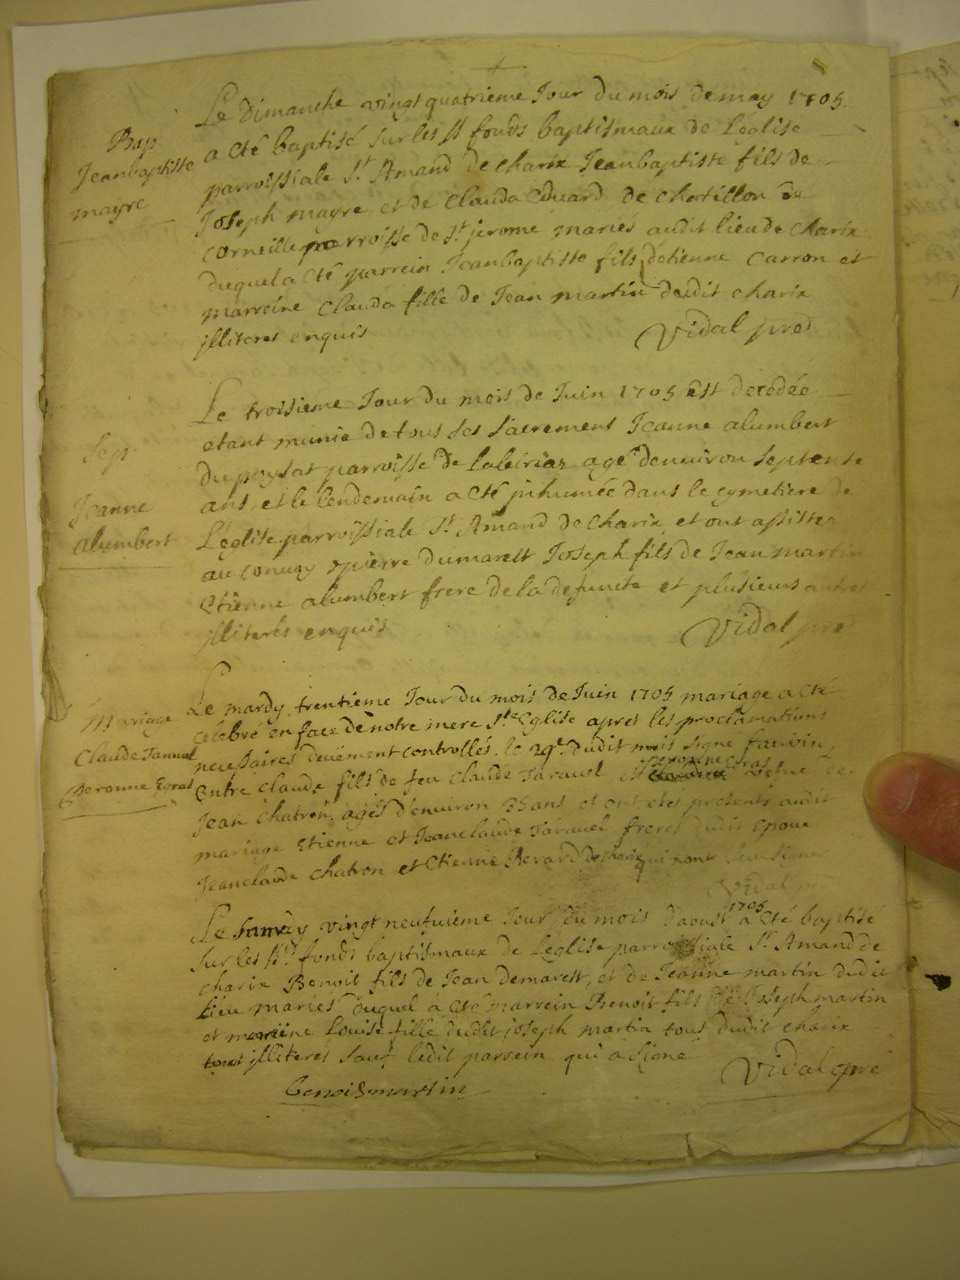 Le Dimanche vingt quatrieme Jour du mois de may 1705
Bap
Jeanbaptiste
mayre
a eté baptisé sur les sts fonds baptismaux de Leglise
parroissiale St Amand de charix Jeanbaptiste fils de
Joseph mayre et de Clauda Eduard de chatillon de
corneille parroisse de St jerome mariés audit lieu de charix
duquel a eté parrein Jeanbaptiste fils detienne Carron et
marreine Clauda fille de Jean martin dudit charix
jlliteres enquis
Vidal pre
Le troisieme Jour du mois de Juin 1705 est decedée
Sep
Jeanne
alumbert
etant munie de tous ses sacrement Jeanne alumbert
du poysat parroisse de Laleiriaz agé denviron septente
ans, et le lendemain a eté jnhumée dans le cymetiere de
Leglise parroissiale St Amand de Charix, et ont assisté
au convoy pierre dumarest Joseph fils de Jean martin
Etienne alumbert frere de la defuncte et plusieurs autres
jlliterés enquis
Vidal pre
Mariage
Claude Taravel
Peronne Egras
Le mardy trentieme Jour du mois de Juin 1705 mariage a eté
celebré en face de notre mere Ste Eglise apres les proclamations
necessaires deuëment controllés le 29e dudit mois signe
Entre claude fils de feu claude Taravel et peronne Egras vefve de
Jean Chatron agés d'environ 35 ans et ont etés presents audit
mariage Etienne et Jeanclaude Taravel freres dudit Epoux
Jeanclaude chatron et Etienne Berard de charix qui nont sceu signer
Vidal
Le samedy vingt neufuieme Jour du mois daoust 1705 a eté baptisé
sur les sts fonds baptismaux de Leglise parroissiale St Amand de
charix Benoit fils de Jean Demarest, et de Jeanne martin dudit
lieu mariés duquel à eté parrein Benoit fils de Joseph martin
et mareine Louise fille dudit joseph martin tous dudit charix
jlliterés sauf ledit parrein qui a signé
Vidal pré
benoist martin